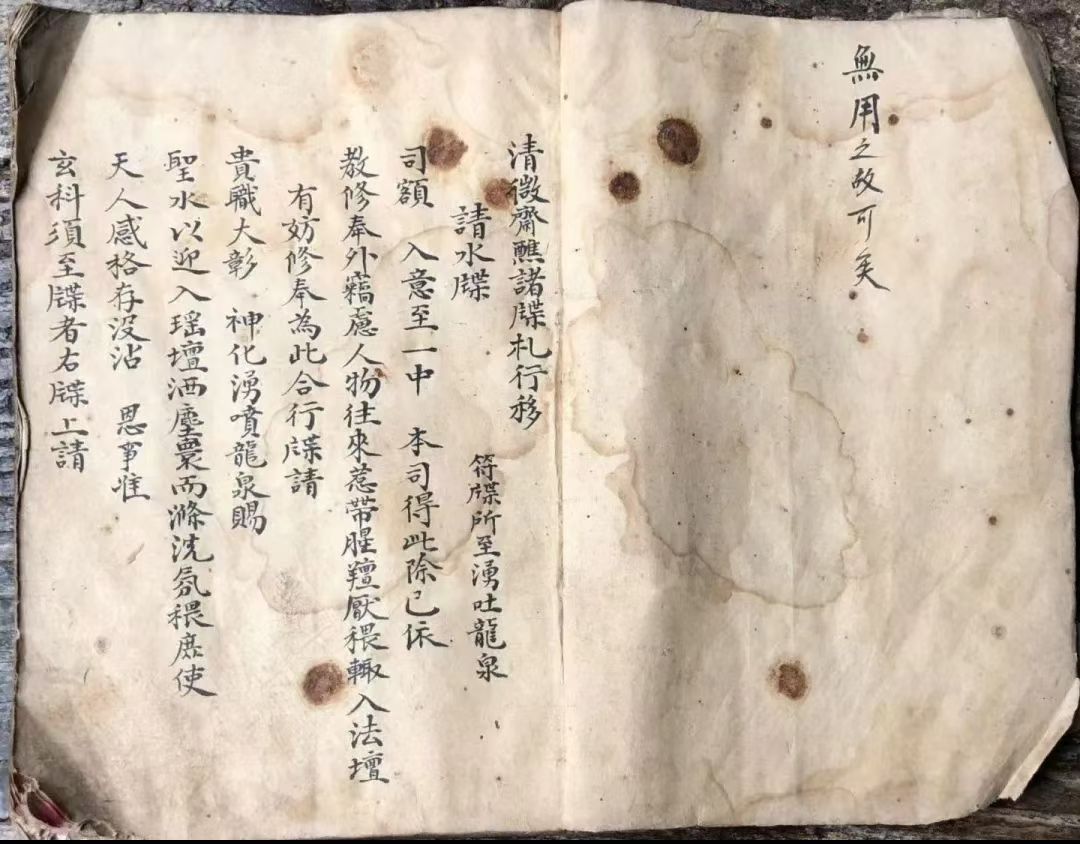 無用之故可矣
清微齋醮諸牒札行移
請水牒　符牒所至湧吐龍泉
司額　入意至一中　本司得此除已依
教修奉外竊慮人物往來惹帶腥羶厭穢輙入法壇
有妨修奉為此合行牒請
貴職大彰　神化湧噴龍泉賜
聖水以迎入瑶壇洒塵寰而滌洗氛穢庶使
天人感格存没沾　恩事惟
玄科須至牒者右牒上請